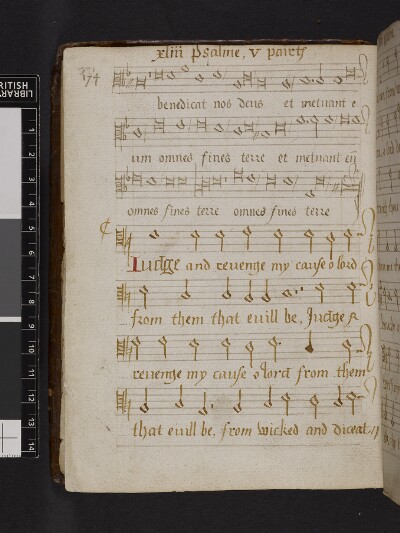 xliii Psalme, V pairts
74
benedicat nos deus et metuant e
um omnes fines terre et metuant eū
omnes fines terre omnes fines terre
Iudge and revenge my cause o lord
from them that evill be, Judge &
revenge my cause o lord from them
that evill be, from wicked and diceat
BRITISH
LIBRARY
1
2
3
4
5
6
7
8
9
10
11
12
13
14